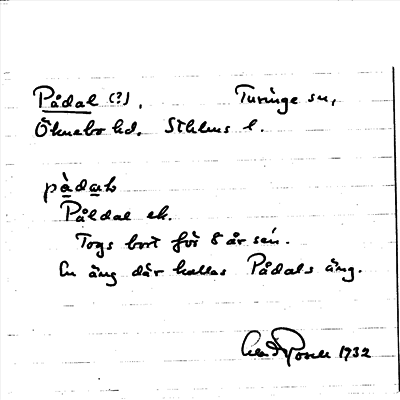 Pådal (?). Turinge sn,
Öknebo hd. Sthlms l.
pàdaḷ
Påldal ek.
Togs bort för 8 år sen.
En äng där kallas Pådals äng.
1932